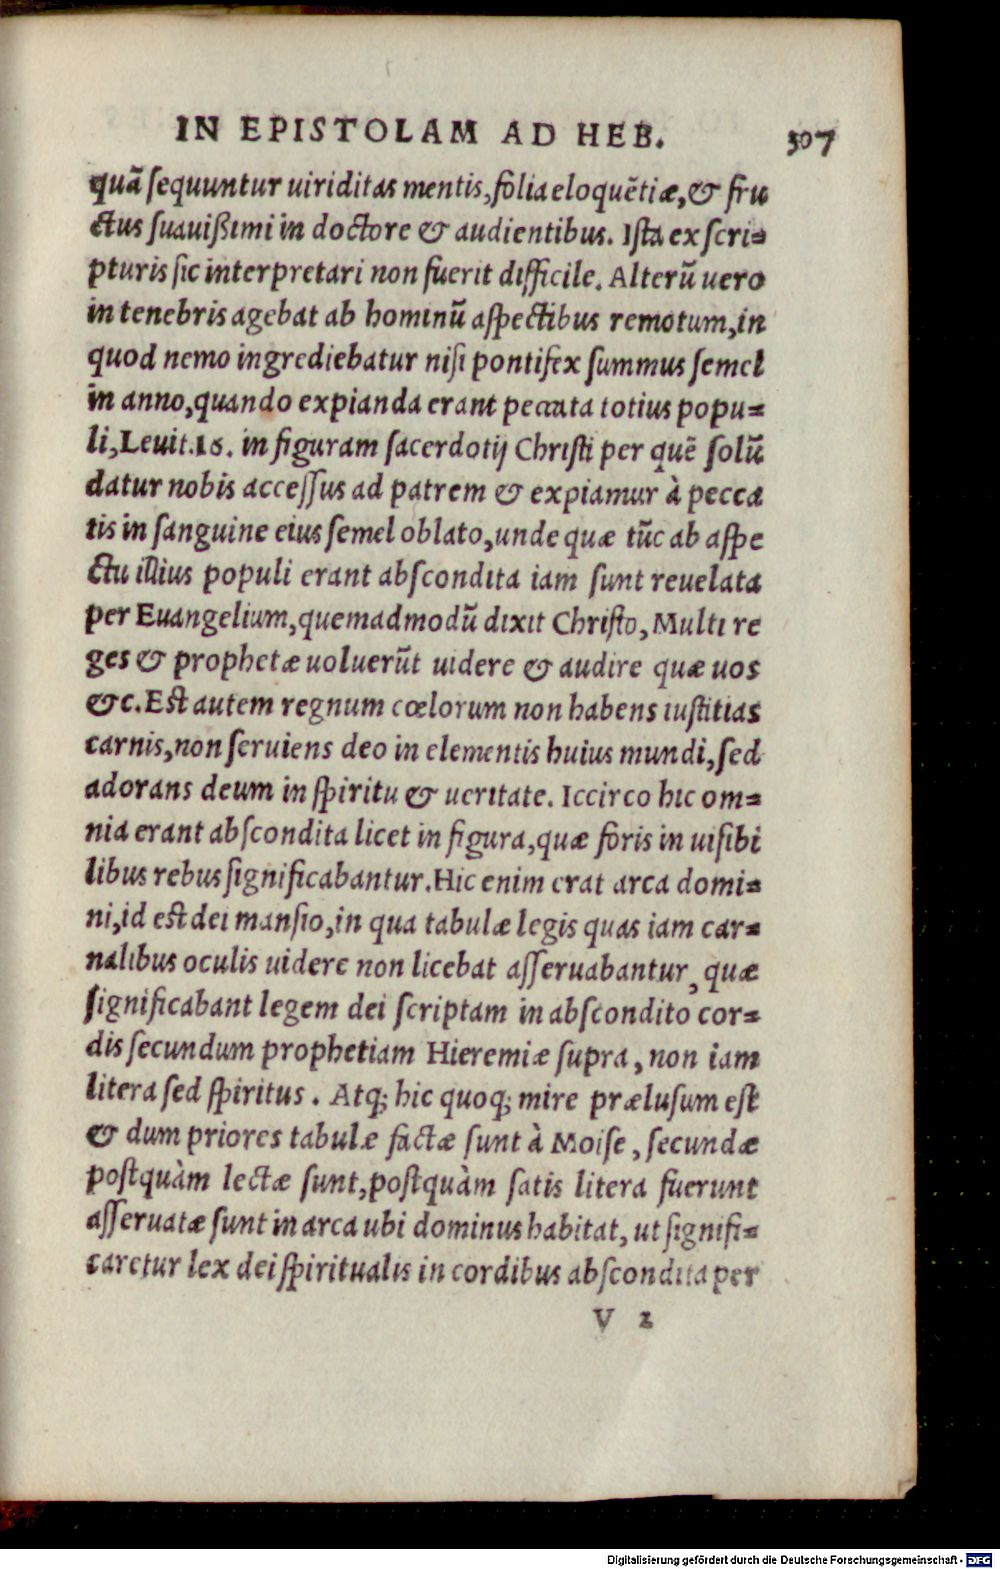 IN EPISTOLAM AD HEB. 307
quã sequuntur uiriditas mentis, folia eloquẽtiæ, & fru
ctus suauißimi in doctore & audientibus. Ista ex scri=
pturis sic interpretari non fuerit difficile. Alterũ uero
in tenebris agebat ab hominũ aspectibus remotum, in
quod nemo ingrediebatur nisi pontifex summus semel
in anno, quando expianda erant peccata totius popu=
li, Leuit. 16. in figuram sacerdotij Christi per quẽ solũ
datur nobis accessus ad patrem & expiamur à pecca
tis in sanguine eius semel oblato, unde quæ tũc ab aspe
ctu illius populi erant abscondita iam sunt reuelata
per Euangelium, quemadmodũ dixit Christo, Multi re
ges & prophetæ uoluerũt uidere & audire quæ uos
&c. Est autem regnum cœlorum non habens iustitias
carnis, non seruiens deo in elementis huius mundi, sed
adorans deum in spiritu & ueritate. Iccirco hic om=
nia erant abscondita licet in figura, quæ foris in uisibi
libus rebus significabantur. Hic enim erat arca domi=
ni, id est dei mansio, in qua tabulæ legis quas iam car=
nalibus oculis uidere non licebat asseruabantur, quæ
significabant legem dei scriptam in abscondito cor=
dis secundum prophetiam Hieremiæ supra, non iam
litera sed spiritus. Atq; hic quoq; mire prælusum est
& dum priores tabulæ factæ sunt à Moise, secundæ
postquàm lectæ sunt, postquàm satis litera fuerunt
asseruatæ sunt in arca ubi dominus habitat, ut signifi=
caretur lex dei spiritualis in cordibus abscondita per
V 2
Digitalisierung gefördert durch die Deutsche Forschungsgemeinschaft - DFG